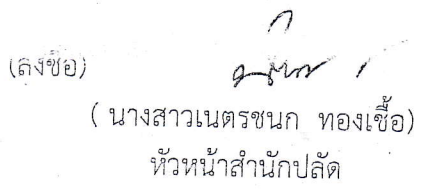 (ลงชื่อ)
( นางสาวเนตรชนก ทองเชื้อ)
หัวหน้าสำนักปลัด